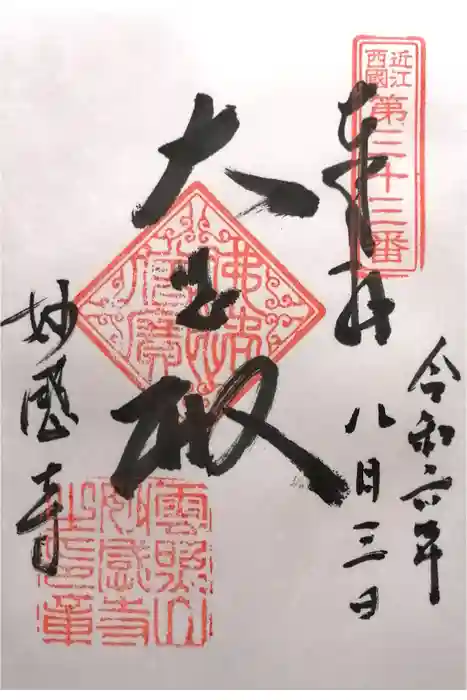 近江
西國
第三十三番
奉拝
令和六年
八月三日
佛法
僧寶
大悲殿
雲照山
妙感寺
之印章
妙感寺